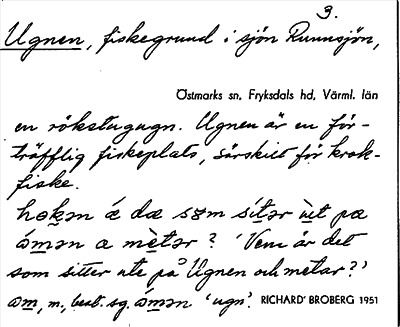 3.
Ugnen, fiskegrund i sjön Runnsjön,
Östmarks sn, Fryksdals hd, Värml. län
en rökstugugn. Ugnen är en för-
träfflig fiskeplats, särskilt för krok-
fiske.
hɵkən ǽ dæ sɵm sítər ùt pæ
ɷ́mən a mètər? 'Vem är det
som sitter ute på Ugnen och metar?'
ɷm, m., best. sg. ɷ́mən 'ugn'. RICHARD BROBERG 1951